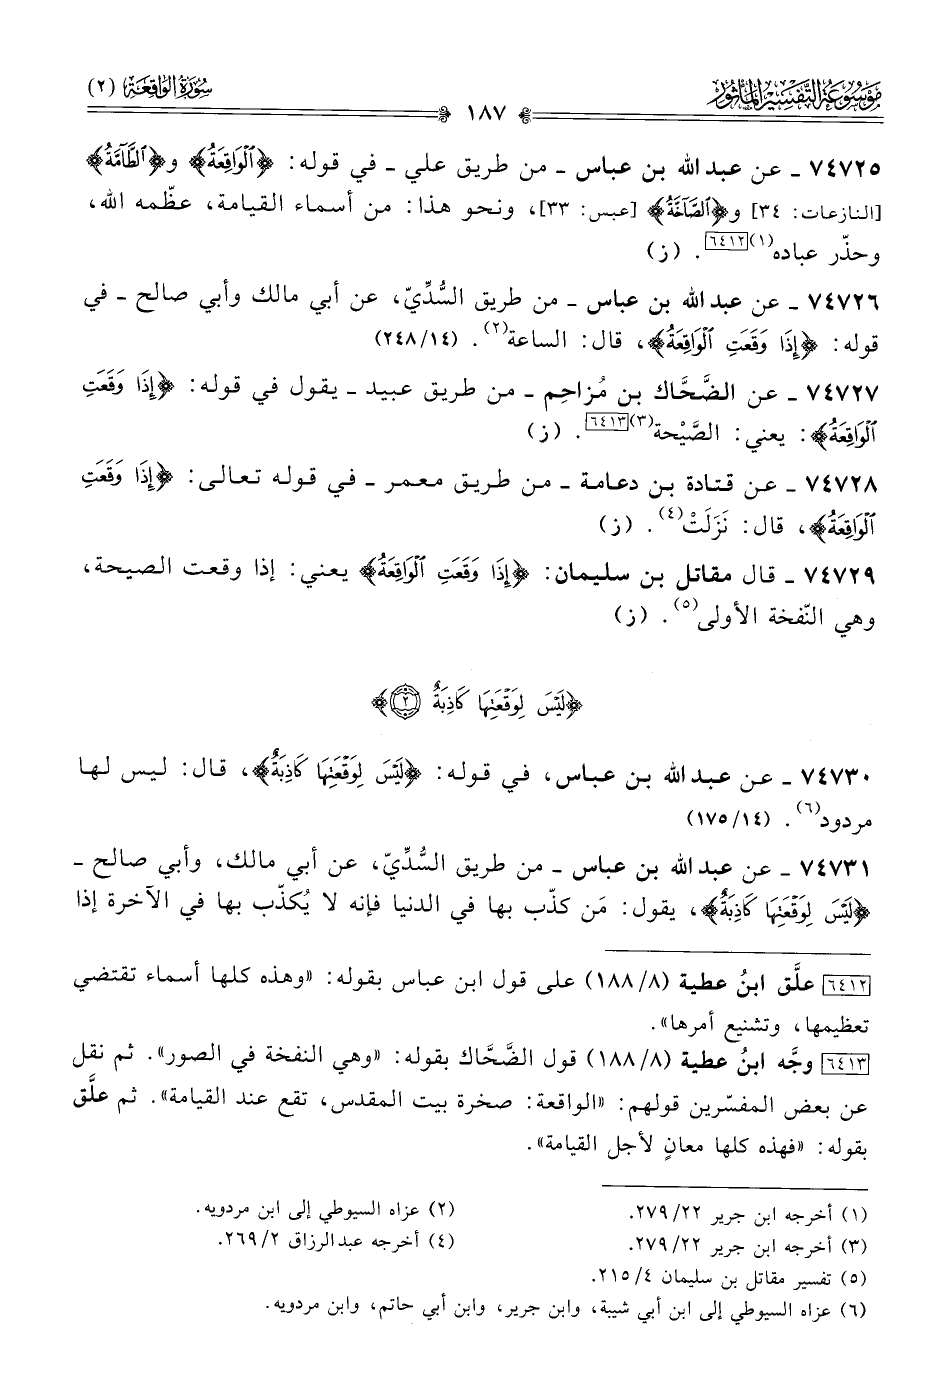 مَوْسُوعَةُ التَّفْسِيرِ المَأْثُورِ
سُورَةُ الوَاقِعَةِ (٢)
١٨٧
٧٤٧٢٥ ـ عن عبد الله بن عباس ـ من طريق علي ـ في قوله: ﴿ٱلْوَاقِعَةُ﴾ و﴿ٱلطَّآمَّةُ﴾
[النازعات: ٣٤] و﴿ٱلصَّآخَّةُ﴾ [عبس: ٣٣]، ونحو هذا: من أسماء القيامة، عظّمه الله،
وحذّر عباده(١)[٦٤١٢]. (ز)
٧٤٧٢٦ ـ عن عبد الله بن عباس ـ من طريق السُّدِّيّ، عن أبي مالك وأبي صالح ـ في
قوله: ﴿إِذَا وَقَعَتِ ٱلْوَاقِعَةُ﴾، قال: الساعة(٢). (٢٤٨/١٤)
٧٤٧٢٧ ـ عن الضَّحَّاك بن مُزاحِم ـ من طريق عبيد ـ يقول في قوله: ﴿إِذَا وَقَعَتِ
ٱلْوَاقِعَةُ﴾: يعني: الصَّيْحة(٣)[٦٤١٣]. (ز)
٧٤٧٢٨ ـ عن قتادة بن دعامة ـ من طريق معمر ـ في قوله تعالى: ﴿إِذَا وَقَعَتِ
ٱلْوَاقِعَةُ﴾، قال: نَزَلَتْ(٤). (ز)
٧٤٧٢٩ ـ قال مقاتل بن سليمان: ﴿إِذَا وَقَعَتِ ٱلْوَاقِعَةُ﴾ يعني: إذا وقعت الصيحة،
وهي النّفخة الأولى(٥). (ز)
﴿لَيْسَ لِوَقْعَتِهَا كَاذِبَةٌ ٢﴾
٧٤٧٣٠ ـ عن عبد الله بن عباس، في قوله: ﴿لَيْسَ لِوَقْعَتِهَا كَاذِبَةٌ﴾، قال: ليس لها
مردود(٦). (١٧٥/١٤)
٧٤٧٣١ ـ عن عبد الله بن عباس ـ من طريق السُّدِّيّ، عن أبي مالك، وأبي صالح ـ
﴿لَيْسَ لِوَقْعَتِهَا كَاذِبَةٌ﴾، يقول: مَن كذّب بها في الدنيا فإنه لا يُكذّب بها في الآخرة إذا
[٦٤١٢] علَّق ابنُ عطية (١٨٨/٨) على قول ابن عباس بقوله: «وهذه كلها أسماء تقتضي
تعظيمها، وتشنيع أمرها».
[٦٤١٣] وجَّه ابنُ عطية (١٨٨/٨) قول الضَّحَّاك بقوله: «وهي النفخة في الصور». ثم نقل
عن بعض المفسّرين قولهم: «الواقعة: صخرة بيت المقدس، تقع عند القيامة». ثم علَّق
بقوله: «فهذه كلها معانٍ لأجل القيامة».
(١) أخرجه ابن جرير ٢٧٩/٢٢.
(٢) عزاه السيوطي إلى ابن مردويه.
(٣) أخرجه ابن جرير ٢٧٩/٢٢.
(٤) أخرجه عبد الرزاق ٢٦٩/٢.
(٥) تفسير مقاتل بن سليمان ٢١٥/٤.
(٦) عزاه السيوطي إلى ابن أبي شيبة، وابن جرير، وابن أبي حاتم، وابن مردويه.